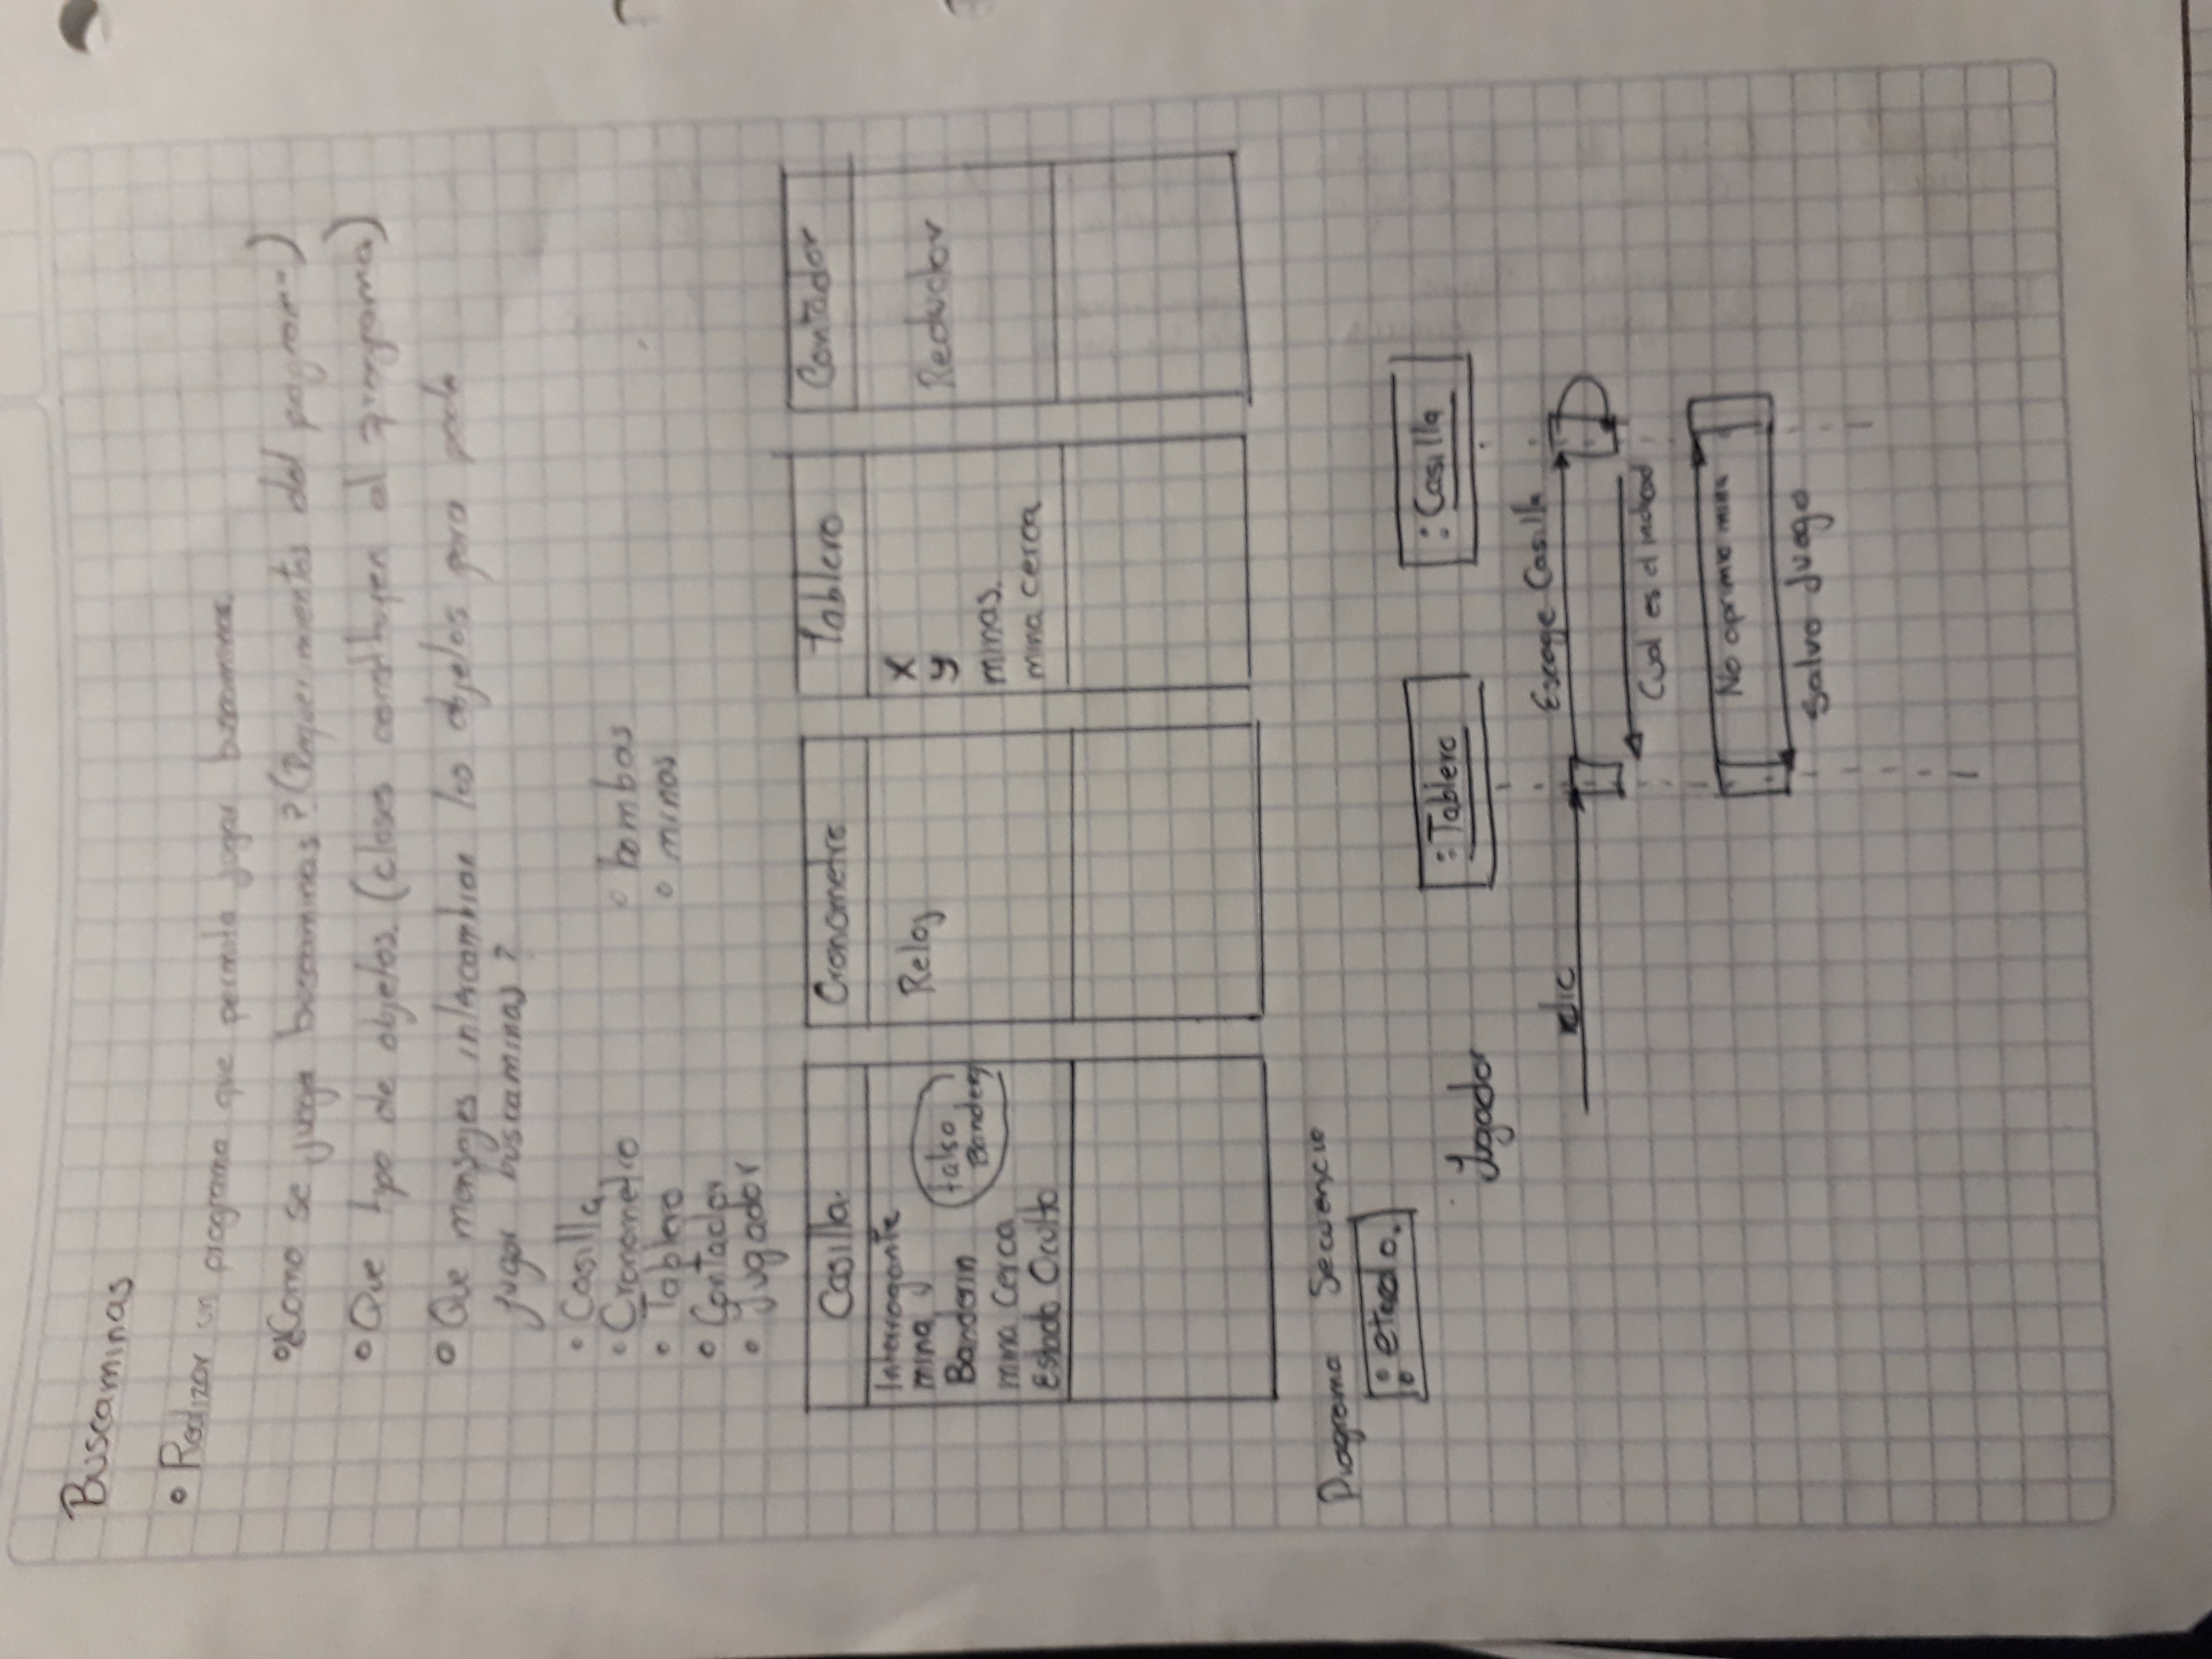 Buscaminas
• Realizar un programa que permita jugar buscaminas.
• ¿Como se juega buscaminas? (Requerimientos del program-)
• Que tipo de objetos. (clases constituyen al programa)
• Que mensajes intercambian los objetos para poder
jugar buscaminas?
• Casilla
• Cronometro
• bombas
• Tablero
• minas
• Contador
• Jugador
Casilla.
Cronometro
Tablero
Contador
Interrogante
mina
Banderin
falso
Bandera
mina cerca
Estado Oculto
Reloj
x
y
minas.
mina cerca
Reductor
Diagrama Secuencia
Jugador
: Tablero
: Casilla
clic
Escoge Casilla
Cual es el
No oprimio mina
Salvo Juego